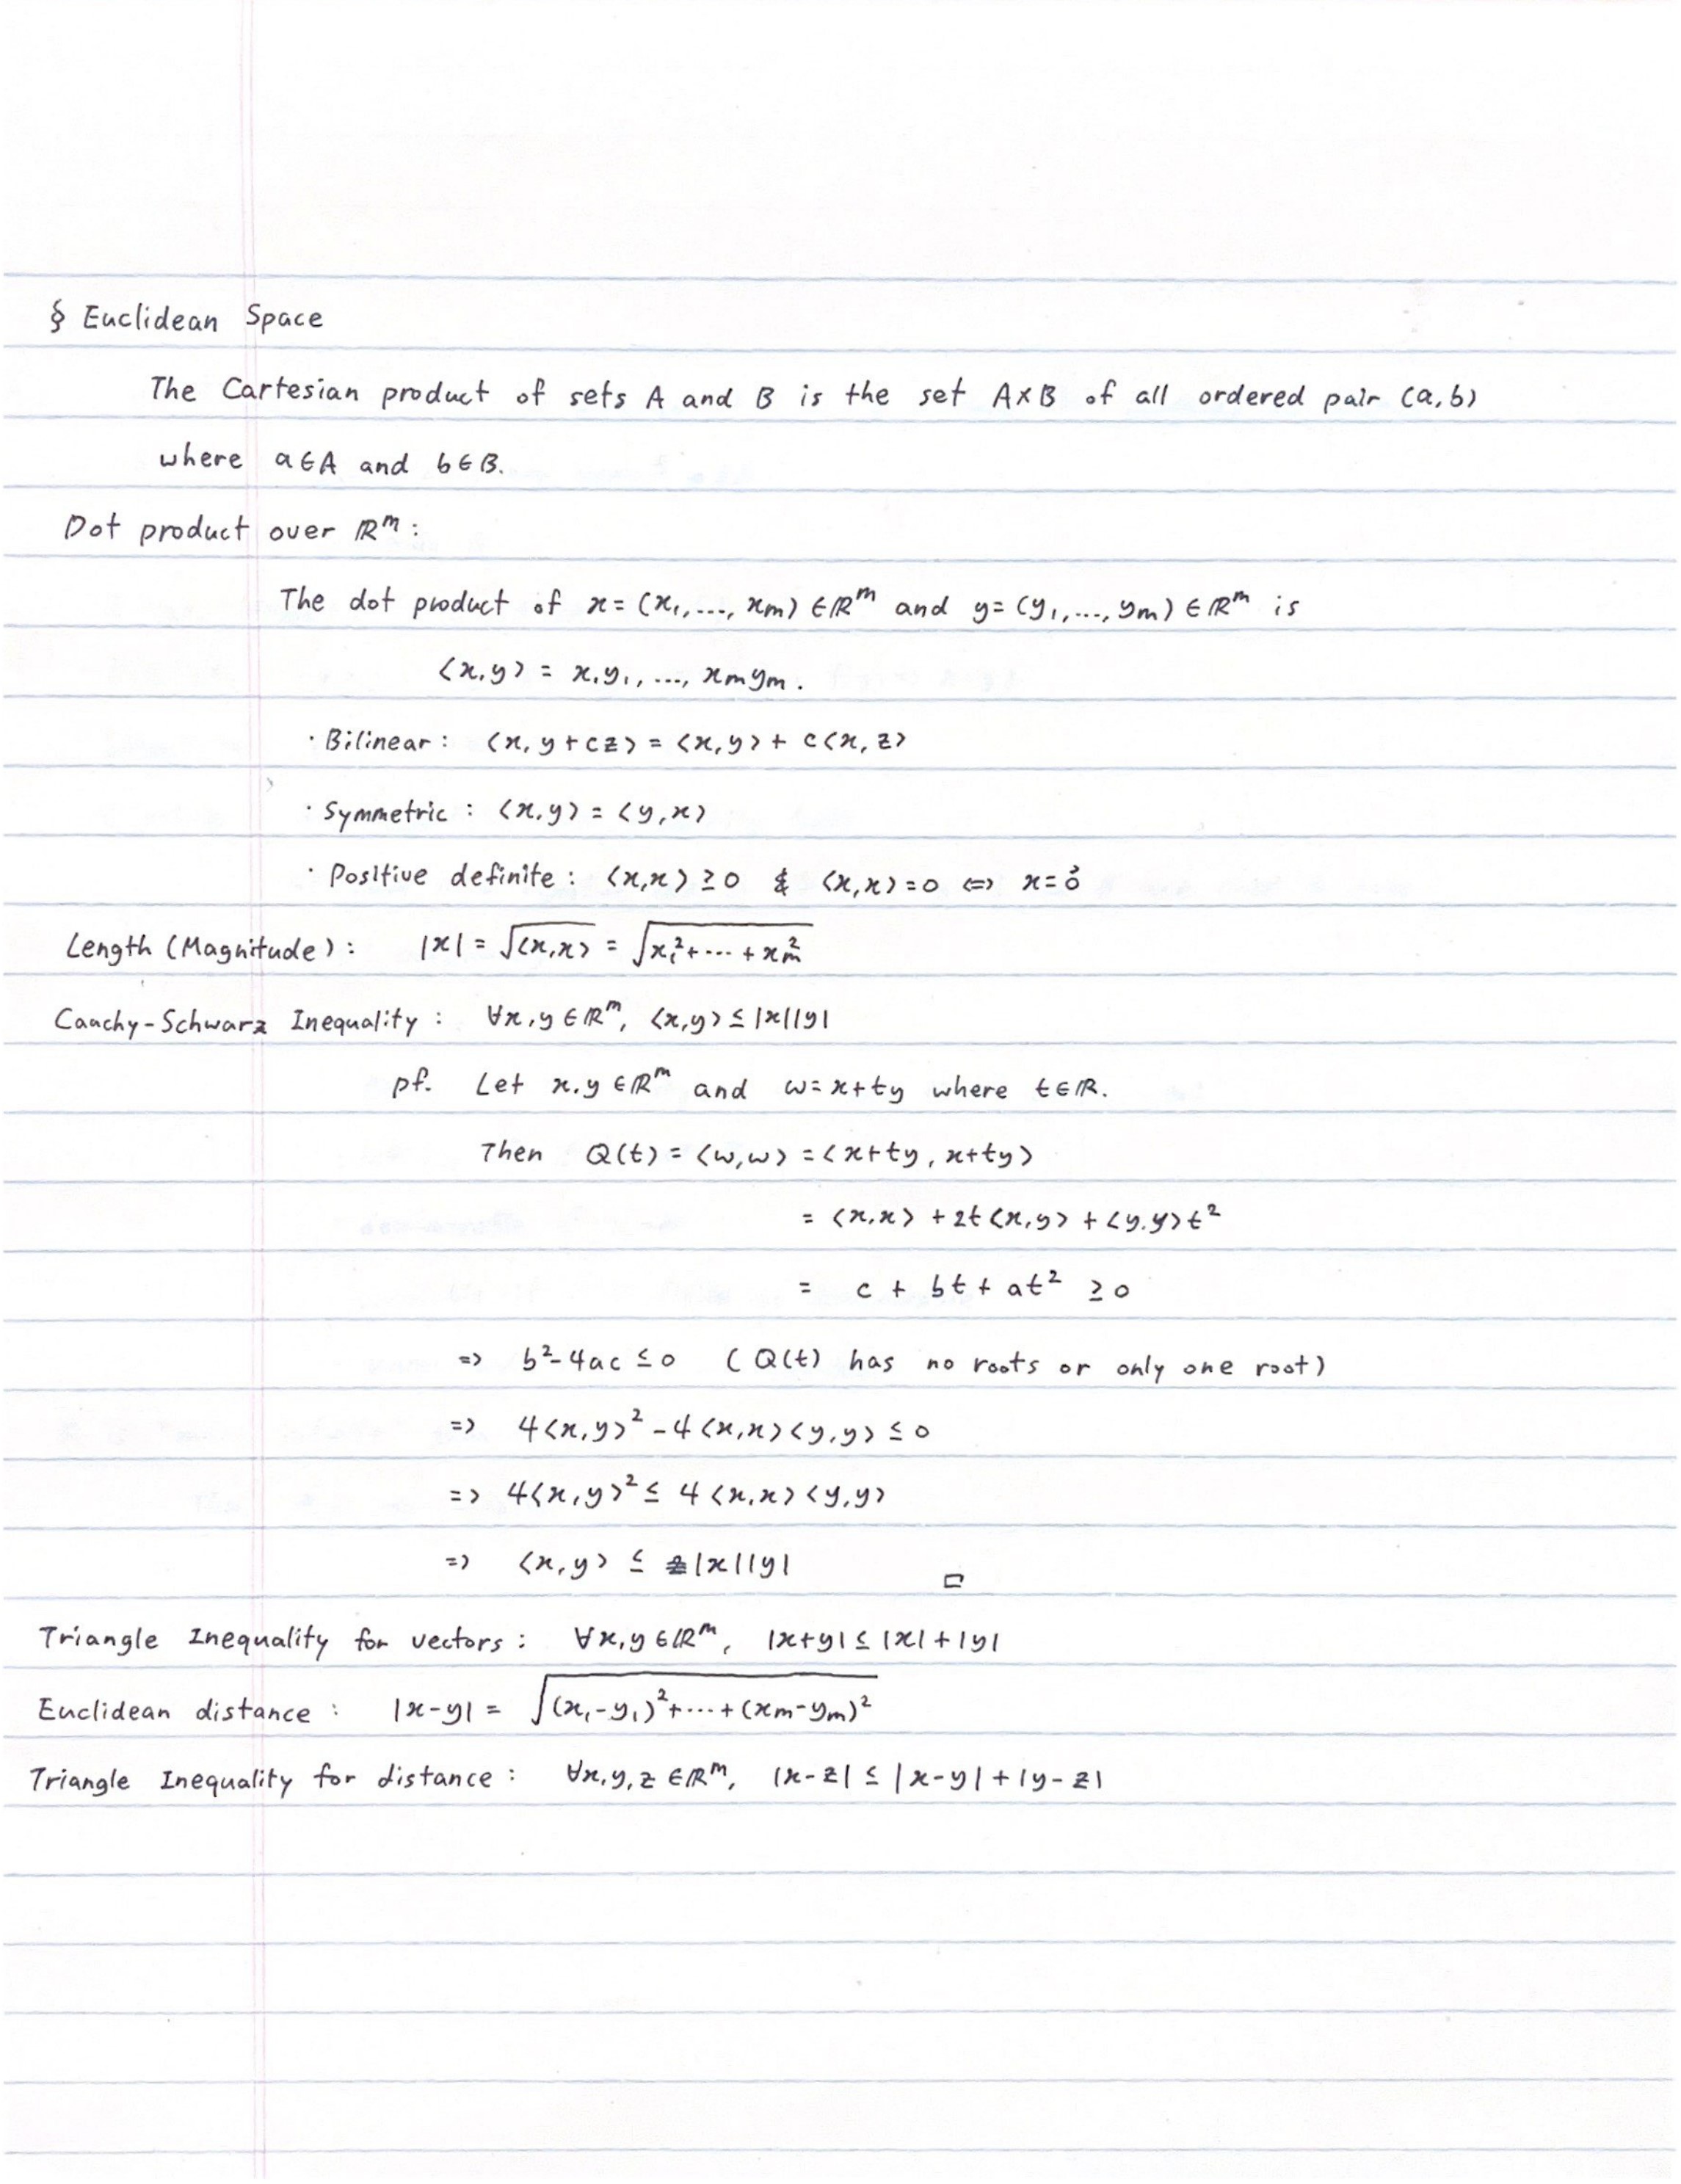 § Euclidean Space
The Cartesian product of sets A and B is the set A×B of all ordered pair (a,b)
where a∈A and b∈B.
Dot product over ℝᵐ:
The dot product of x=(x₁,...,xₘ)∈ℝᵐ and y=(y₁,...,yₘ)∈ℝᵐ is
⟨x,y⟩ = x₁y₁,...,xₘyₘ.
· Bilinear: ⟨x, y+cz⟩ = ⟨x,y⟩ + c⟨x,z⟩
· Symmetric: ⟨x,y⟩ = ⟨y,x⟩
· Positive definite: ⟨x,x⟩ ≥ 0 & ⟨x,x⟩=0 ⟺ x=0⃗
Length (Magnitude): |x| = √⟨x,x⟩ = √(x₁²+⋯+xₘ²)
Cauchy-Schwarz Inequality: ∀x,y∈ℝᵐ, ⟨x,y⟩ ≤ |x||y|
pf. Let x,y∈ℝᵐ and w=x+ty where t∈ℝ.
Then Q(t) = ⟨w,w⟩ = ⟨x+ty, x+ty⟩
= ⟨x,x⟩ + 2t⟨x,y⟩ + ⟨y,y⟩t²
= c + bt + at² ≥ 0
⇒ b²-4ac ≤ 0 (Q(t) has no roots or only one root)
⇒ 4⟨x,y⟩² - 4⟨x,x⟩⟨y,y⟩ ≤ 0
⇒ 4⟨x,y⟩² ≤ 4⟨x,x⟩⟨y,y⟩
⇒ ⟨x,y⟩ ≤ |x||y| □
Triangle Inequality for vectors: ∀x,y∈ℝᵐ, |x+y| ≤ |x|+|y|
Euclidean distance: |x-y| = √((x₁-y₁)²+⋯+(xₘ-yₘ)²)
Triangle Inequality for distance: ∀x,y,z∈ℝᵐ, |x-z| ≤ |x-y|+|y-z|